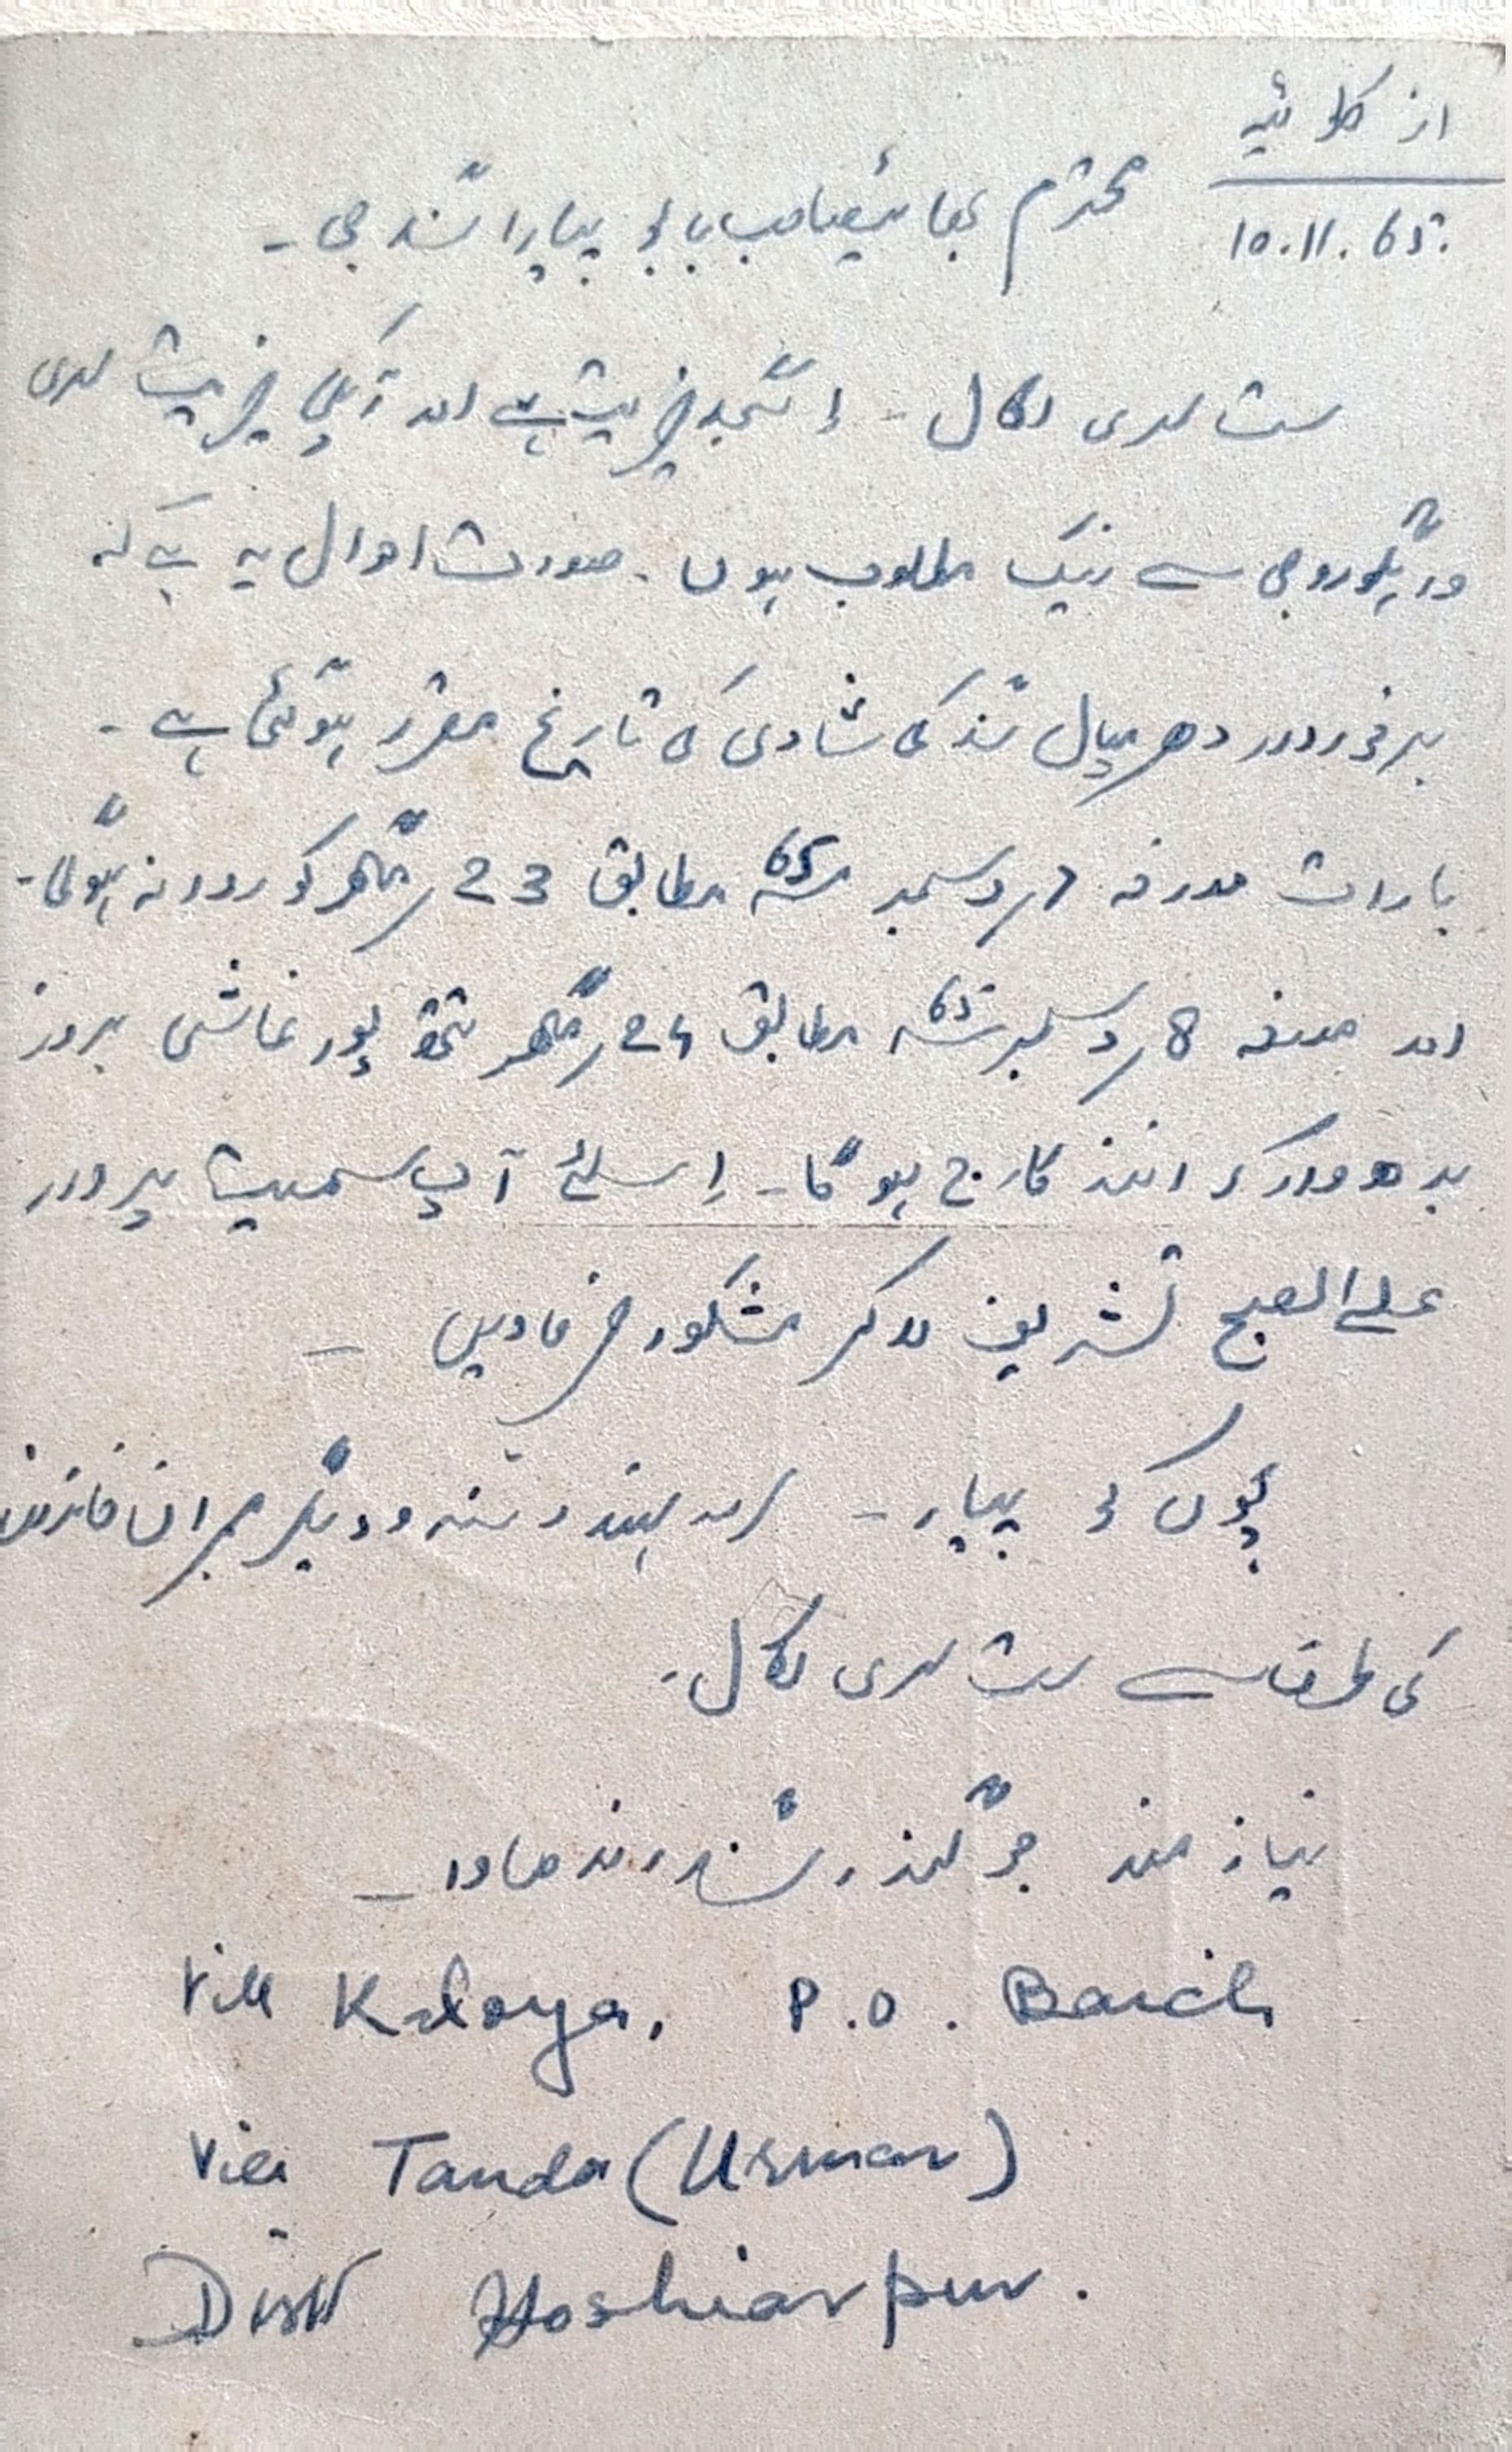 از کلوئیہ
10.11.65
محترم بھائیصاحب بابو پیارا سنگھ جی -
ست سری اکال - اسجگہ خیریت ہے اور آپکی خیریت سری
واہگوروجی سے نیک مطلوب ہوں - صورت احوال یہ ہے کہ
برخوردار دھرمپال سنگھ کی شادی کی تاریخ مقرر ہوگئی ہے -
بارات مورخہ 7 دسمبر 65ء مطابق 23 مگھر کو روانہ ہوگی -
اور مورخہ 8 دسمبر 65ء مطابق 24 مگھر پورنماشی بروز
بدھ وار کو انند کارج ہوگا - اِسلئے آپ سمیت پروار
علےالصبح تشریف لاکر مشکور فرماویں -
بچوں کو پیار - ودیگر ممبران خاندان
کی طرف سے ست سری اکال -
نیاز مند جوگندر سنگھ رندھاوا -
Vill Kaloya, P.O. Baich
Via Tanda (Urmar)
Distt Hoshiarpur.